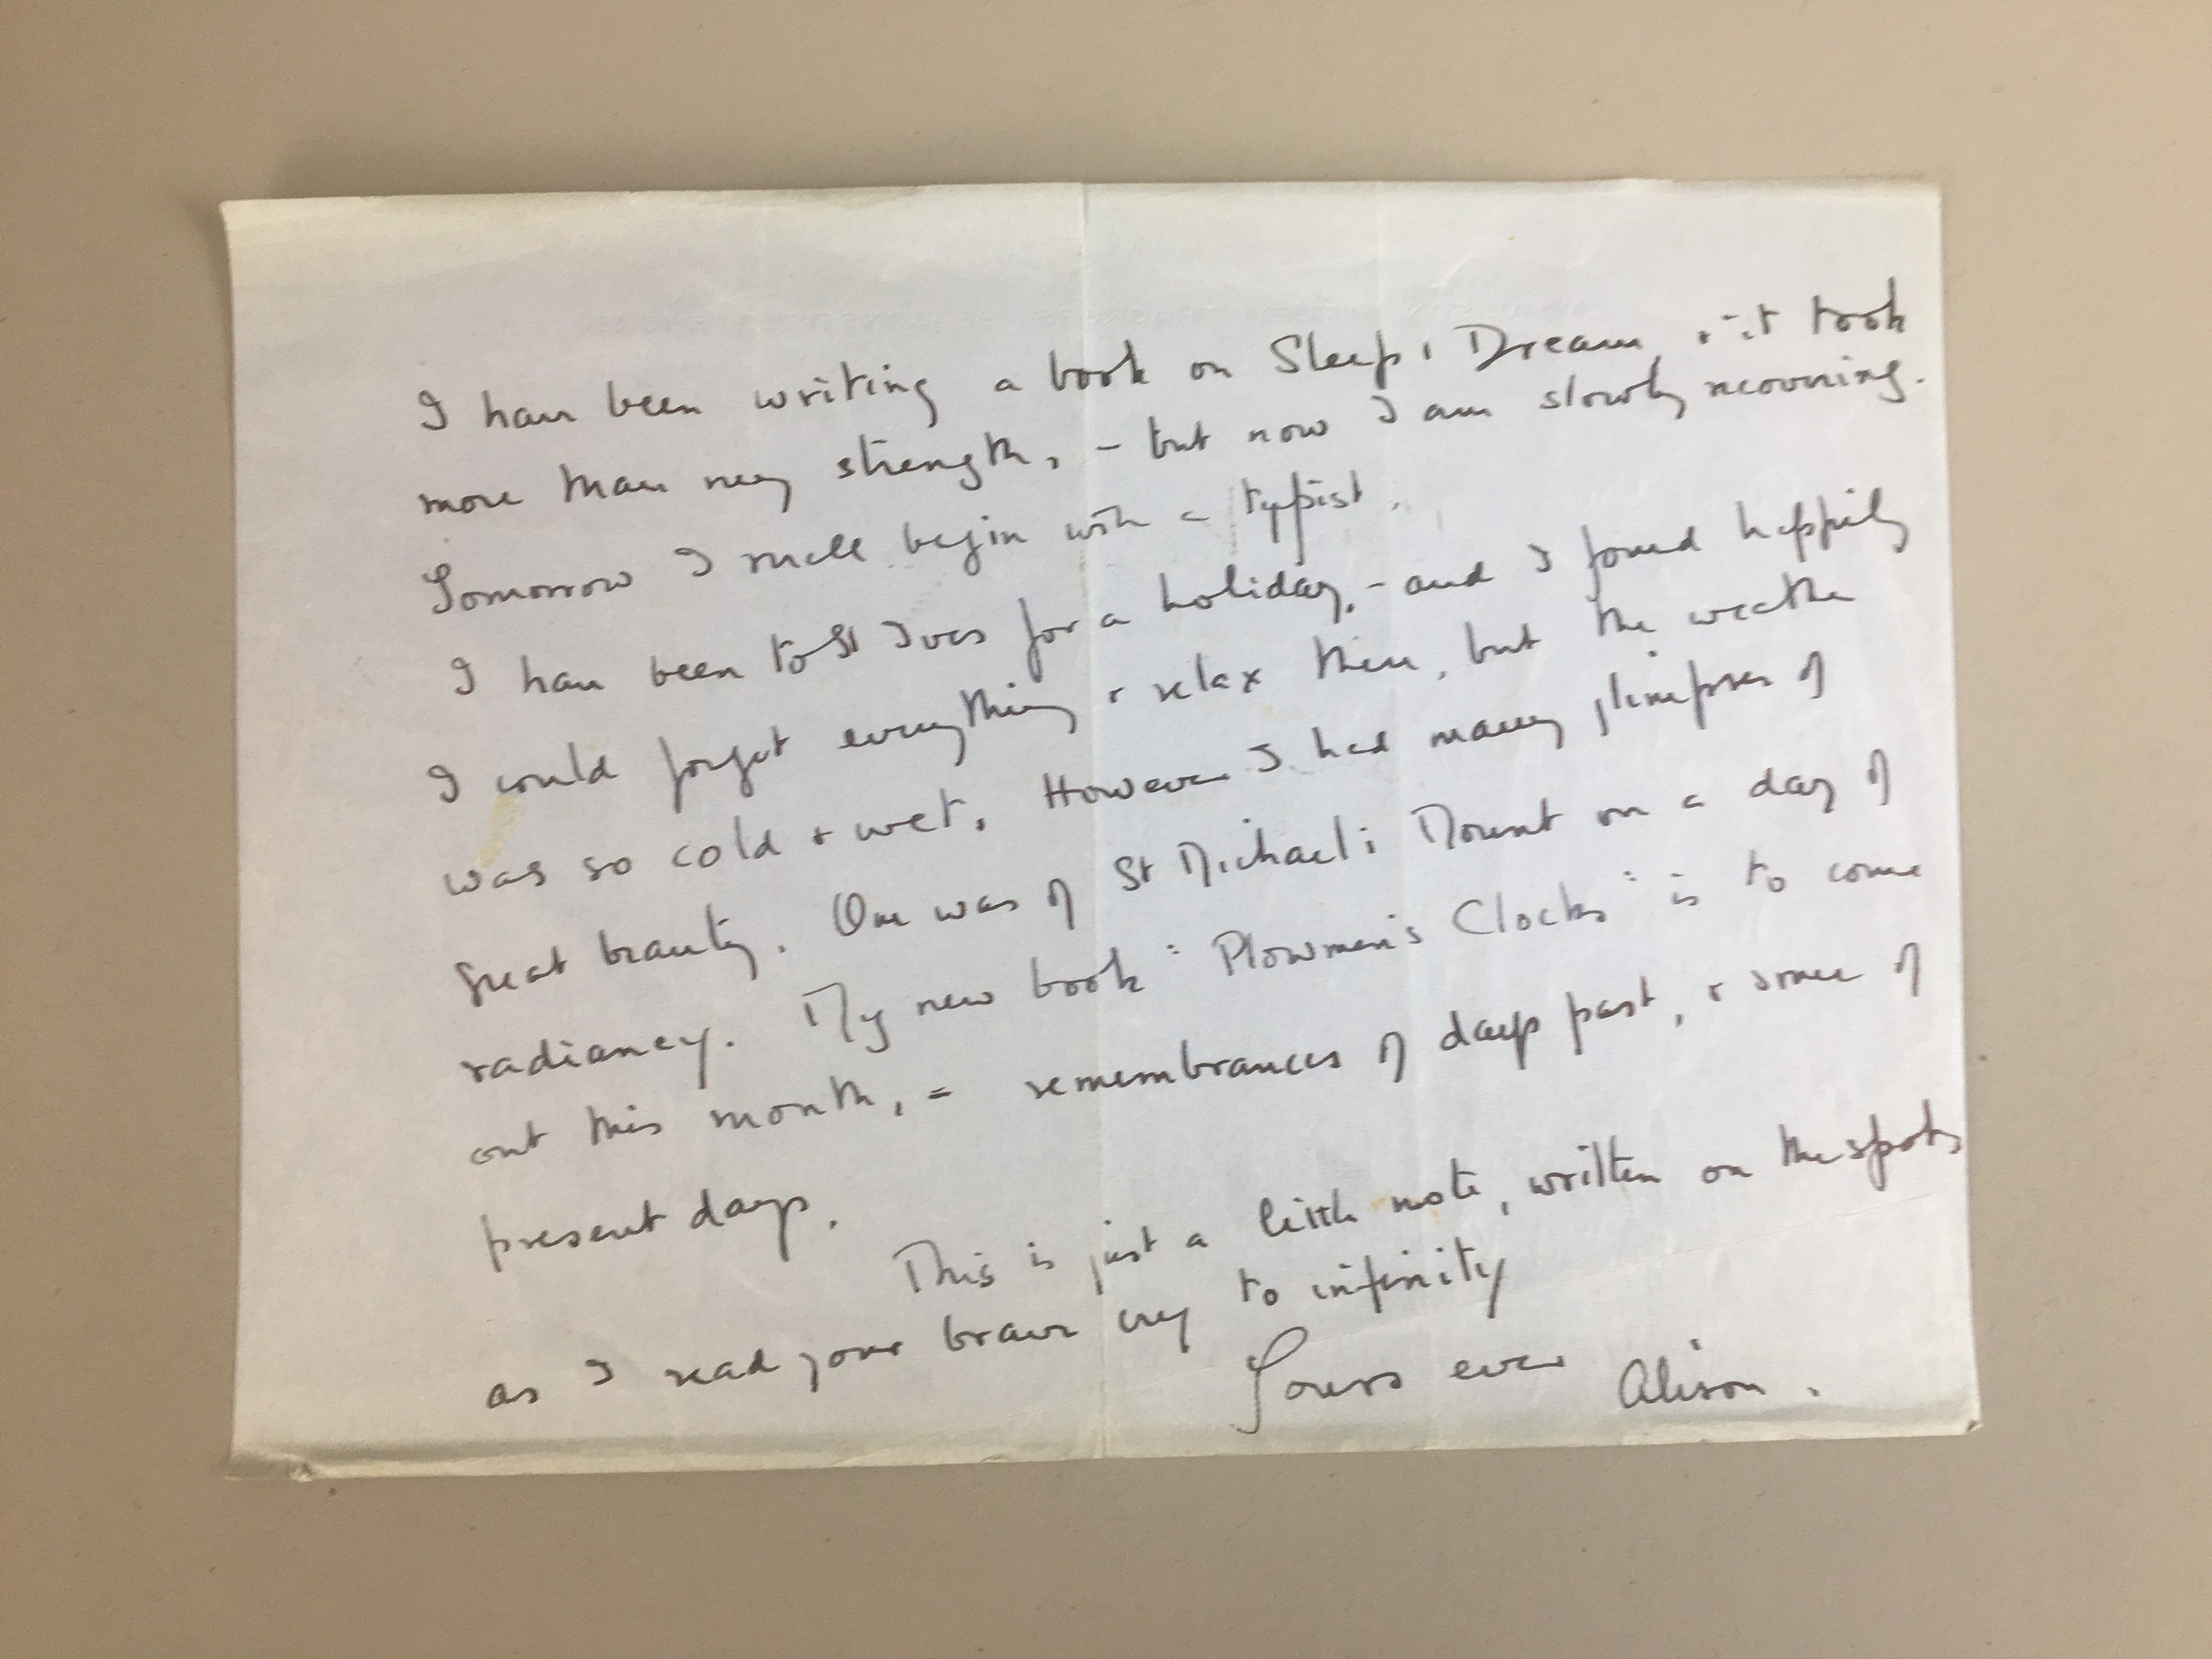 I have been writing a book on Sleep & Dream, & it took
more than my strength, - but now I am slowly recovering.
Tomorrow I shall begin with a typist.
I have been to St Ives for a holiday, - and I found happily
I could forget everything & relax there, but the weather
was so cold & wet. However I had many glimpses of
great beauty. One was of St Michael's Mount on a day of
radiancy. My new book "Plowmen's Clocks" is to come
out this month, = remembrances of days past, & some of
present days.
This is just a little note, written on the spot,
as I read your brave cry to infinity
Yours ever Alison.